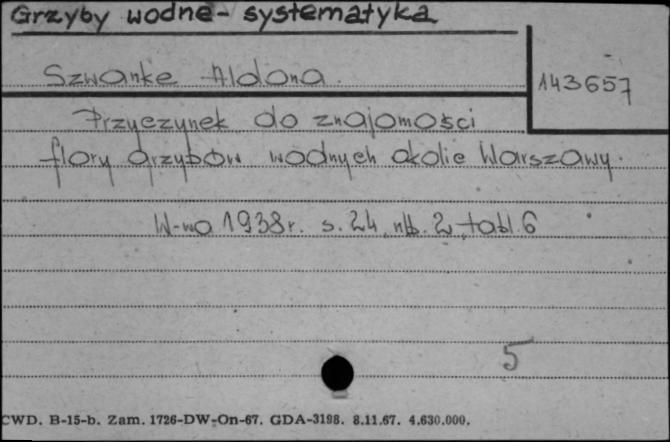 Grzyby wodne - systematyka
Szwanke Aldona.
143657
Przyczynek do znajomości
flory grzybów wodnych okolic Warszawy.
W-wa 1938r. s. 24, nlb. 2, tabl. 6
5
CWD. B-15-b. Zam. 1726-DW-On-67. GDA-3198. 8.11.67. 4.630.000.